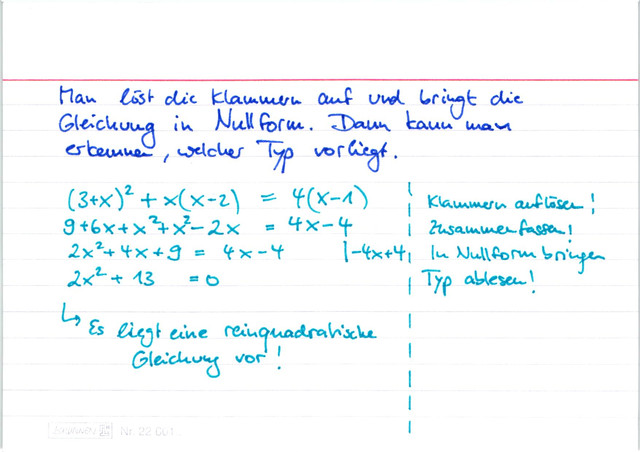 Man löst die Klammern auf und bringt die
Gleichung in Nullform. Dann kann man
erkennen, welcher Typ vorliegt.
(3+x)² + x(x-2) = 4(x-1) Klammern auflösen!
9+6x+x²+x²-2x = 4x-4 Zusammenfassen!
2x²+4x+9 = 4x-4 |-4x+4 In Nullform bringen
2x²+13 =0 Typ ablesen!
↳ Es liegt eine reinquadratische
Gleichung vor!
Nr. 22 001